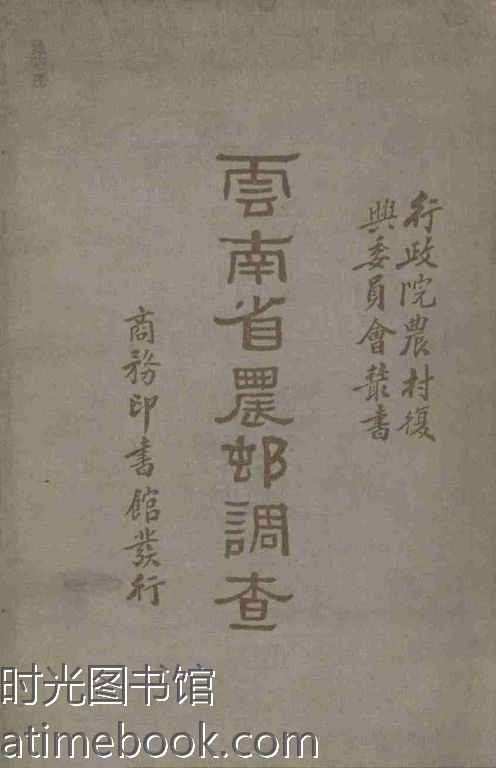 行政院農村復
興委員會叢書
雲南省農邨調查
商務印書館發行
时光图书馆
atimebook.com